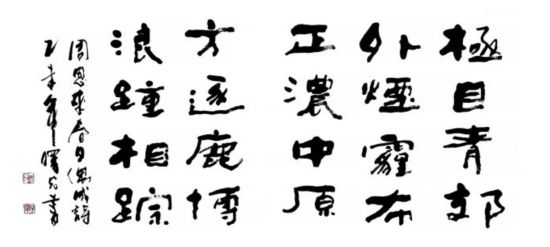 極目青郊
外煙霾布
正濃中原
方逐鹿博
浪踵相踪
周恩来春日偶成詩
乙未年書